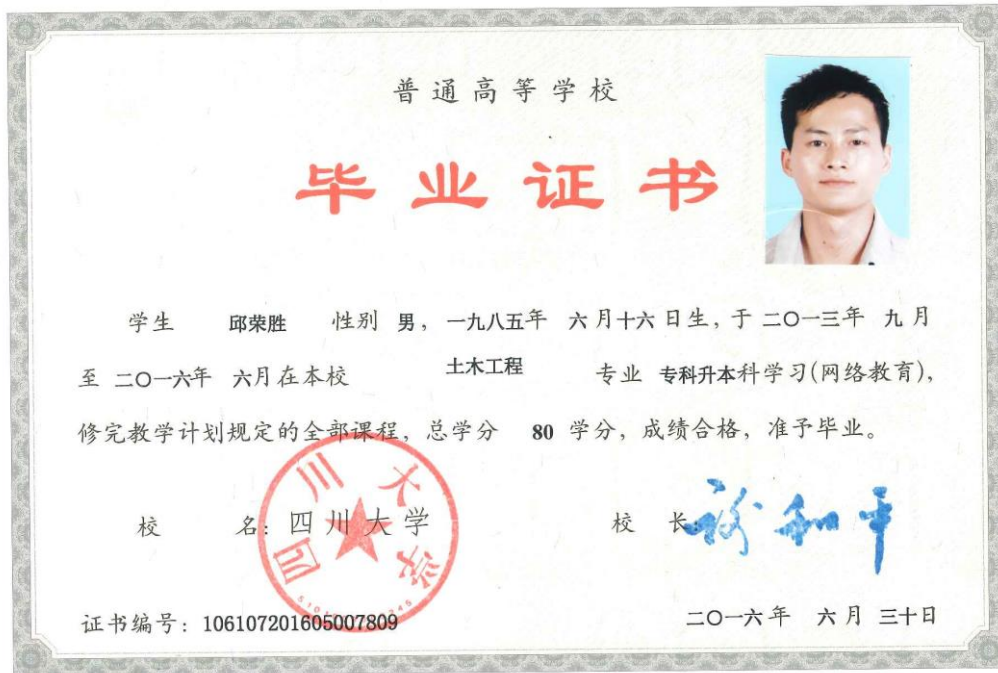 普通高等学校
毕业证书
学生 邱荣胜 性别 男，一九八五年 六月十六日生，于二〇一三年 九月
至二〇一六年 六月在本校 土木工程 专业 专科升本科学习(网络教育)，
修完教学计划规定的全部课程，总学分 80 学分，成绩合格，准予毕业。
四川大学
校 名：四川大学 校 长：谢和平
证书编号：106107201605007809 二〇一六年 六月 三十日